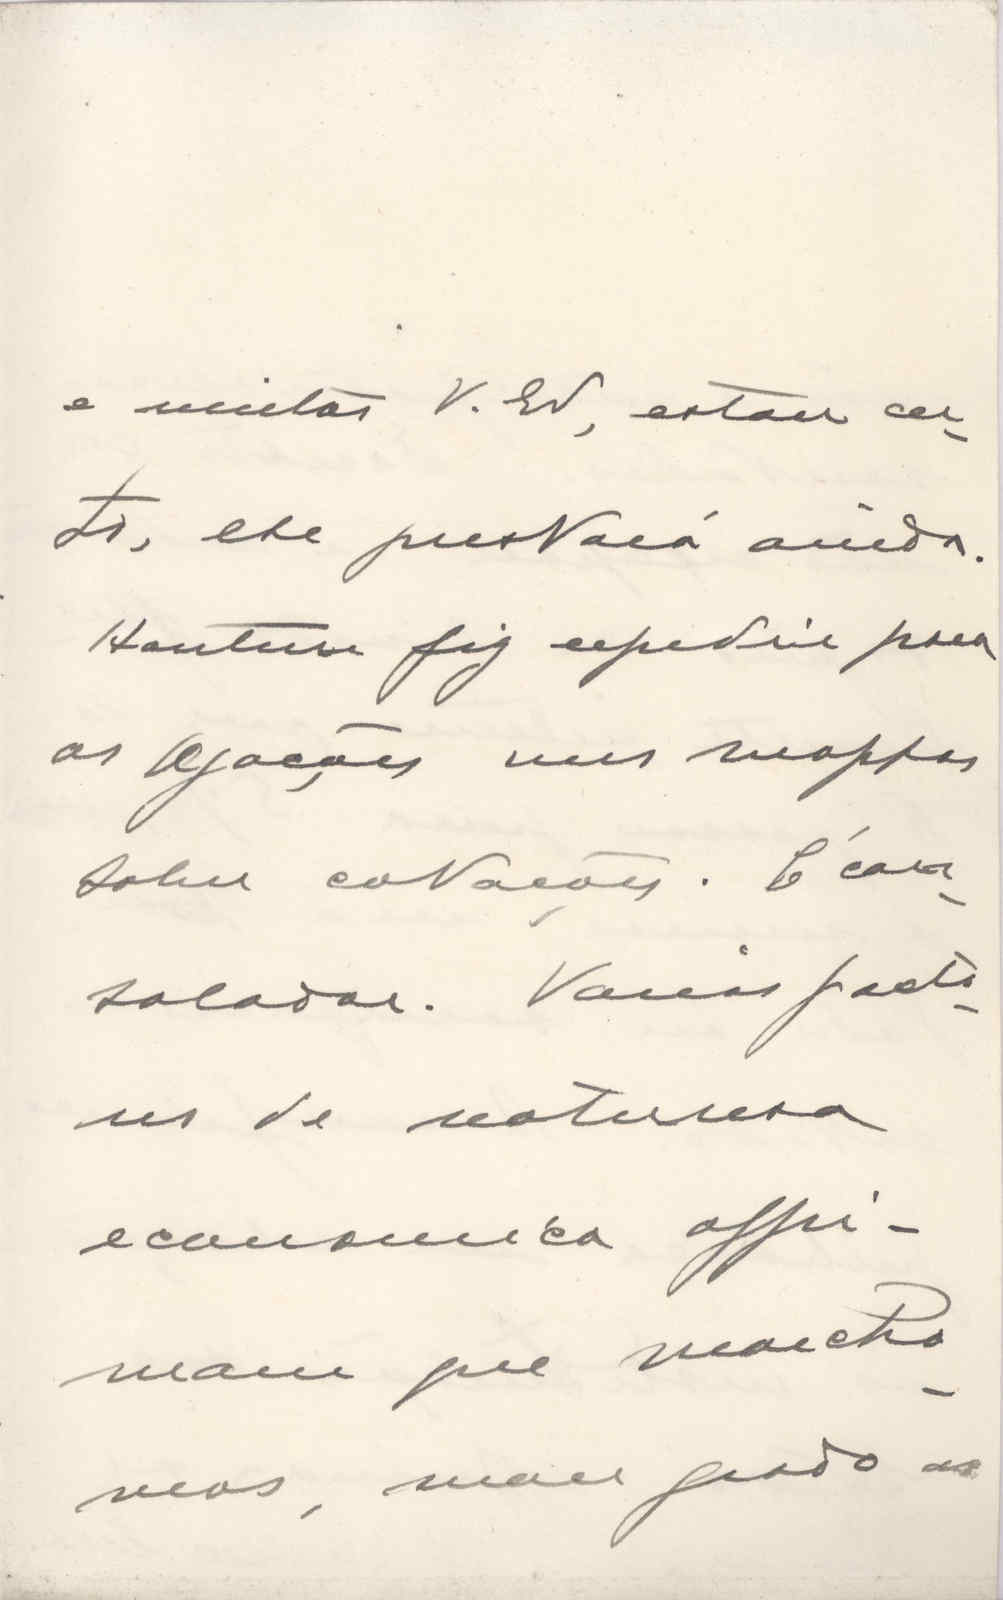 e muitas V. Ex, estou cer-
to, lhe prestará ainda.
Hontem fiz expedir para
as Legações uns mappas
sobre cotações. É con-
solador. Varios facto-
res de natureza
economica affir-
mam que marcha-
mos, mau grado as